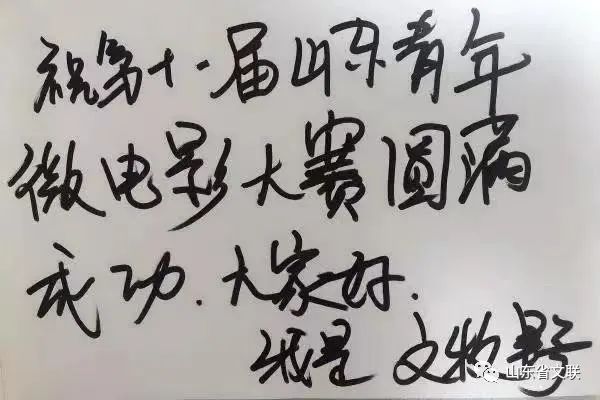 祝第十一届山东青年
微电影大赛圆满
成功.大家好.
我是 文牧野
山东省文联